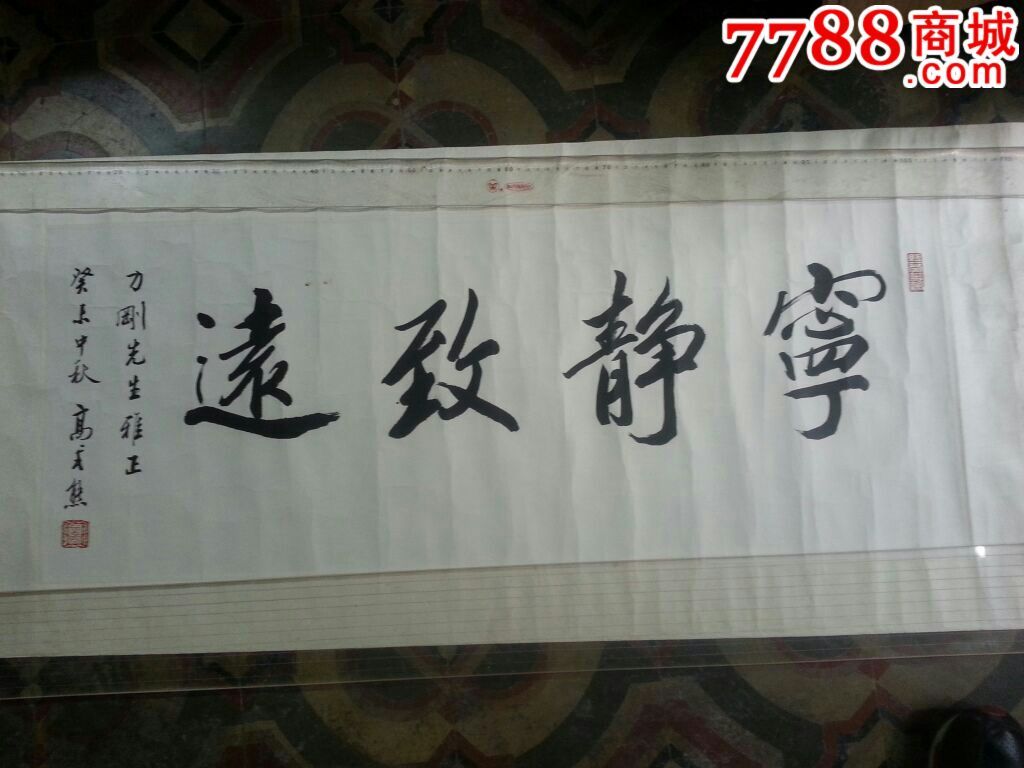 7788商城
.com
寧静致遠
刀剛先生雅正
癸未中秋 高